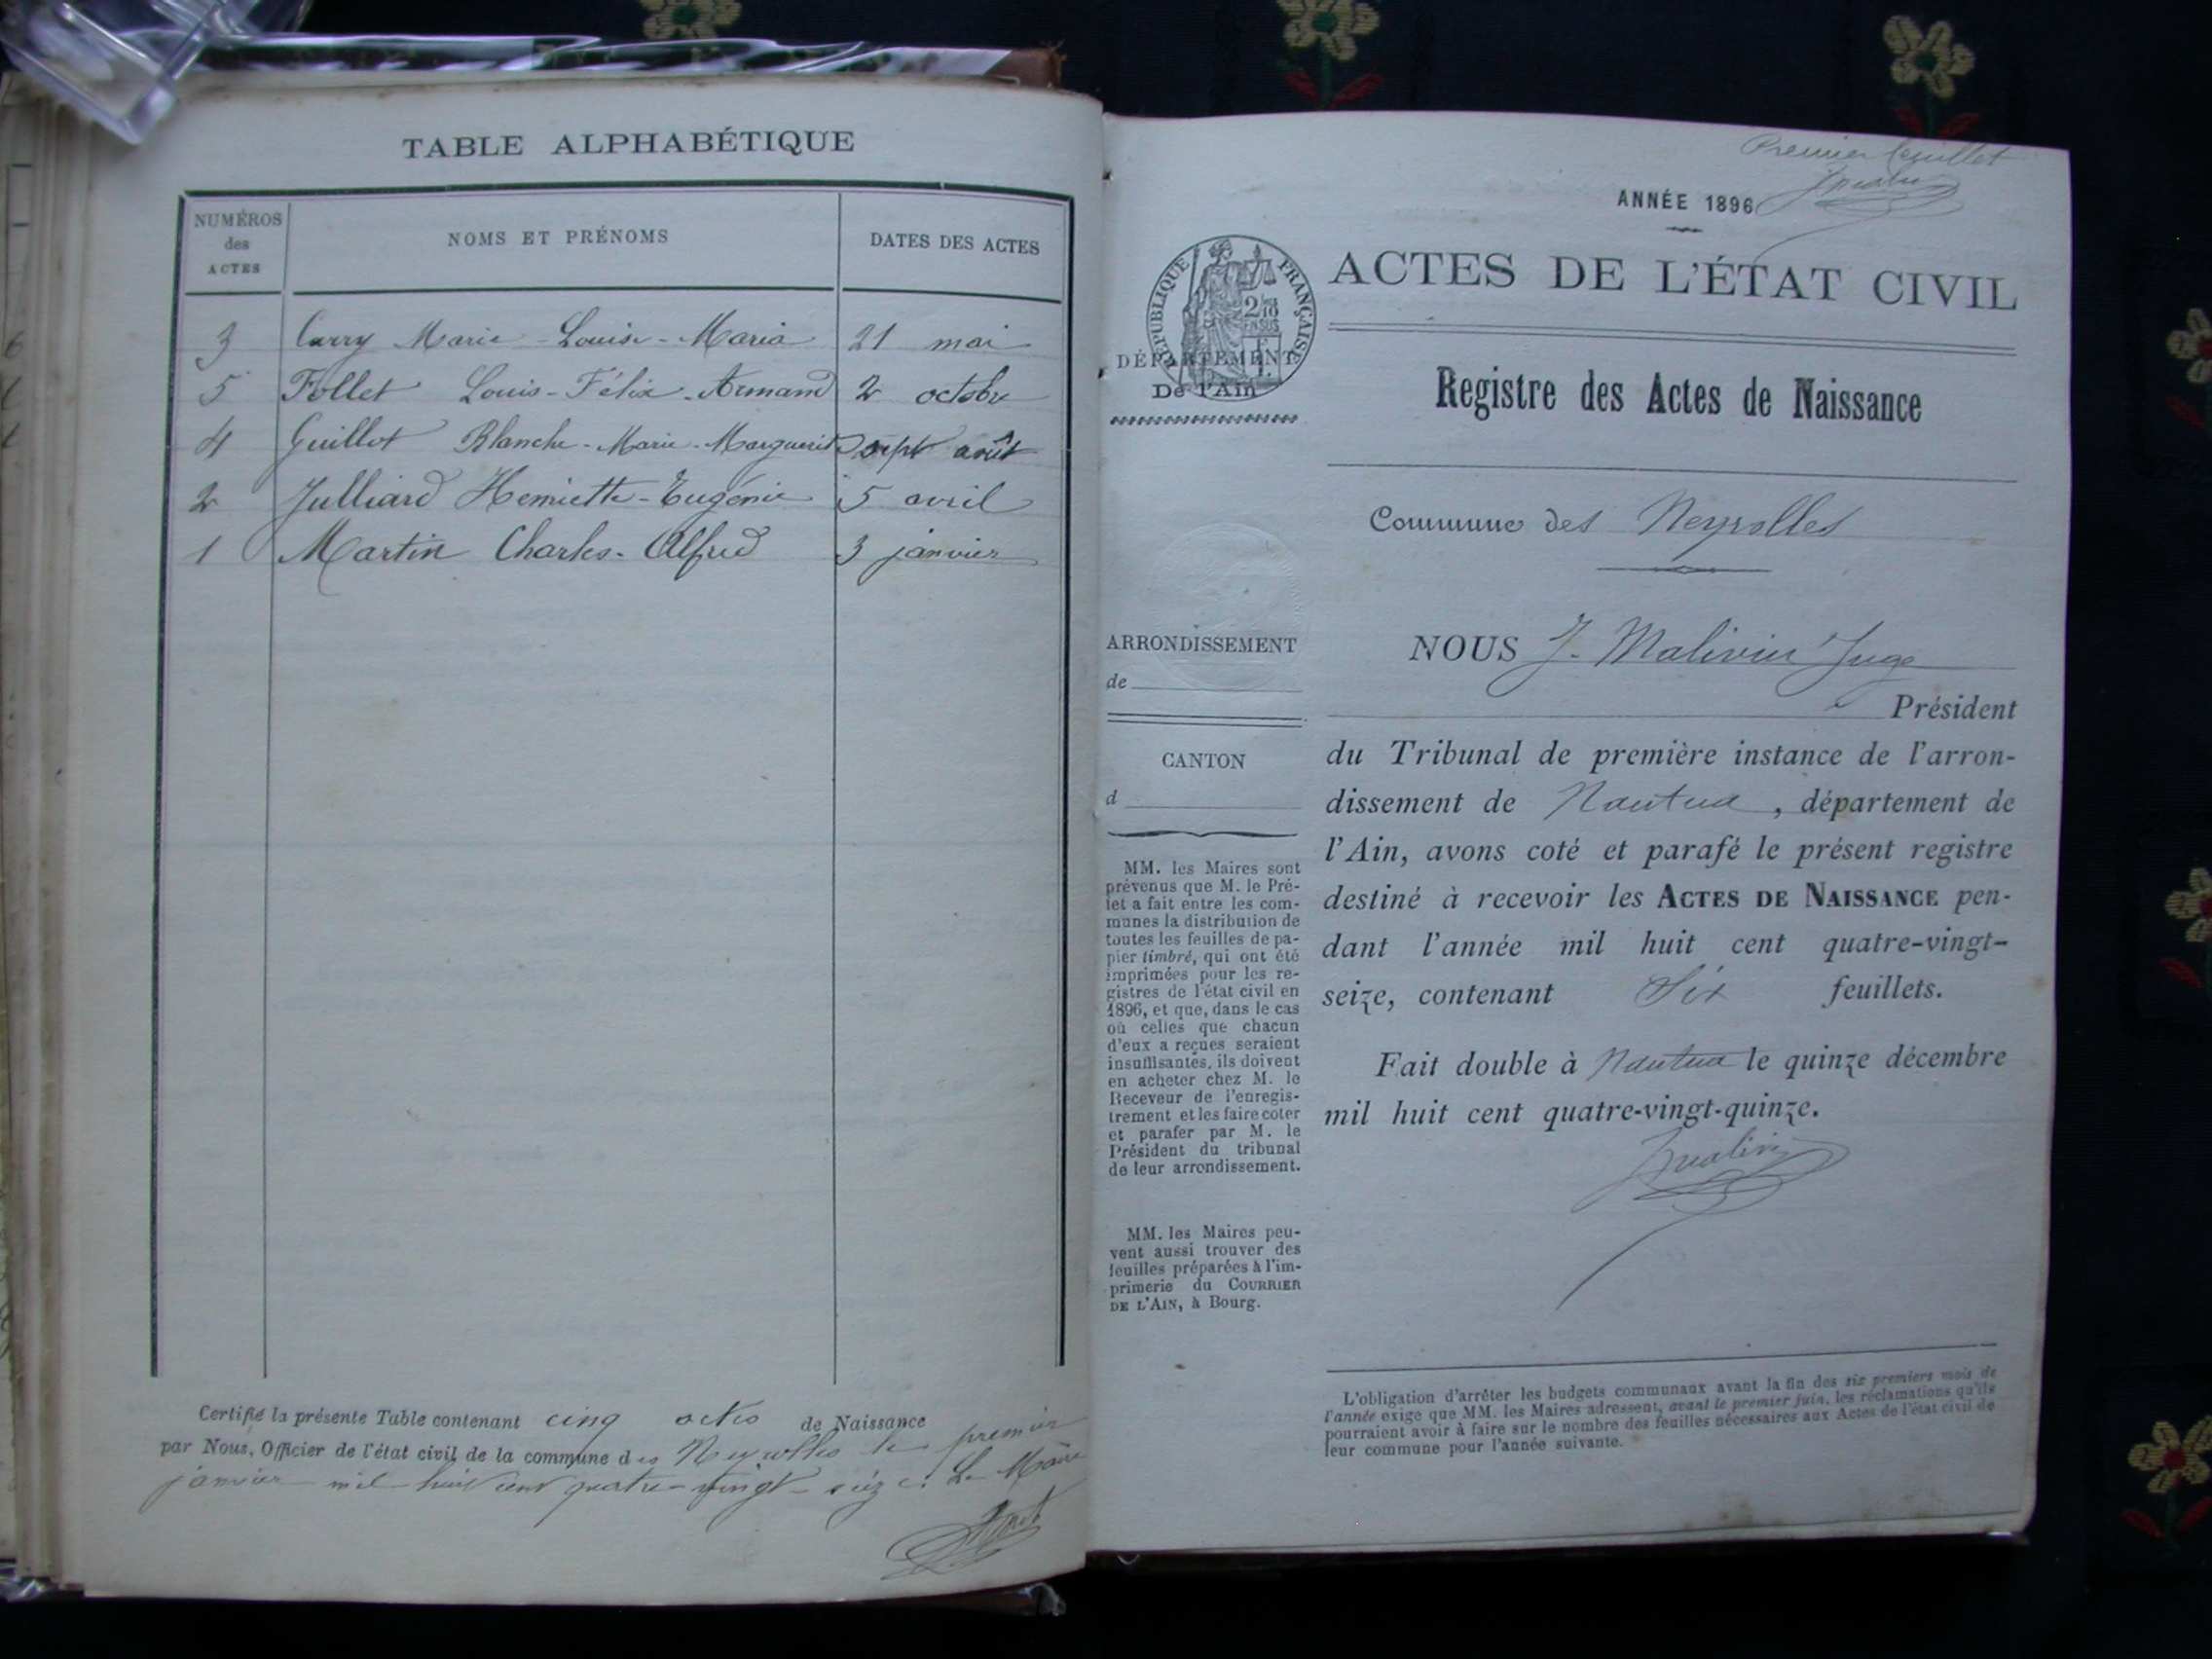 TABLE ALPHABÉTIQUE
NUMÉROS des ACTES NOMS ET PRÉNOMS DATES DES ACTES
3 Carry Marie-Louise-Maria 21 mai
5 Follet Louis-Félix-Armand 2 octobre
4 Guillot Blanche-Marie-Marguerite sept août
2 Julliard Henriette-Eugénie 5 avril
1 Martin Charles-Alfred 3 janvier
Certifié la présente Table contenant cinq actes de Naissance
par Nous, Officier de l'état civil de la commune des Neyrolles le premier
janvier mil huit cent quatre-vingt-seize. Le Maire
Premier feuillet
ANNÉE 1896
ACTES DE L'ÉTAT CIVIL
RÉPUBLIQUE FRANÇAISE
2/10 EN SUS
DÉPARTEMENT
De l'Ain
Registre des Actes de Naissance
Commune des Neyrolles
ARRONDISSEMENT
de
CANTON
d
MM. les Maires sont
prévenus que M. le Pré-
fet a fait entre les com-
munes la distribution de
toutes les feuilles de pa-
pier timbré, qui ont été
imprimées pour les re-
gistres de l'état civil en
1896, et que, dans le cas
où celles que chacun
d'eux a reçues seraient
insuffisantes, ils doivent
en acheter chez M. le
Receveur de l'enregis-
trement et les faire coter
et parafer par M. le
Président du tribunal
de leur arrondissement.
MM. les Maires peu-
vent aussi trouver des
feuilles préparées à l'im-
primerie du COURRIER
DE L'AIN, à Bourg.
NOUS J. Malivin Juge
Président
du Tribunal de première instance de l'arron-
dissement de Nantua, département de
l'Ain, avons coté et parafé le présent registre
destiné à recevoir les ACTES DE NAISSANCE pen-
dant l'année mil huit cent quatre-vingt-
seize, contenant Six feuillets.
Fait double à Nantua le quinze décembre
mil huit cent quatre-vingt-quinze.
L'obligation d'arrêter les budgets communaux avant la fin des six premiers mois de
l'année exige que MM. les Maires adressent, avant le premier juin, les réclamations qu'ils
pourraient avoir à faire sur le nombre des feuilles nécessaires aux Actes de l'état civil de
leur commune pour l'année suivante.